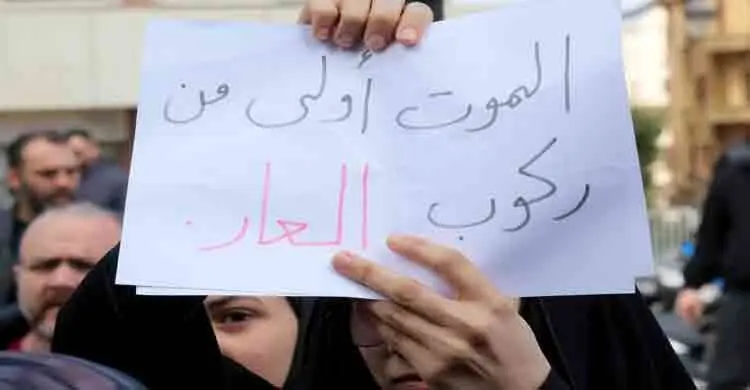 الموت أولى من
ركوب العار.